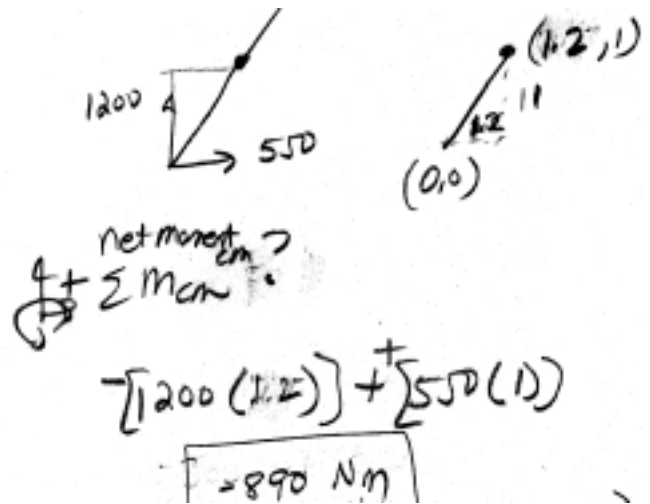 (1.2,1)
1200
550
1.2
1
(0,0)
net moment cm ?
+ Σ Mcm
-[1200(1.2)] + [550(1)]
-890 Nm